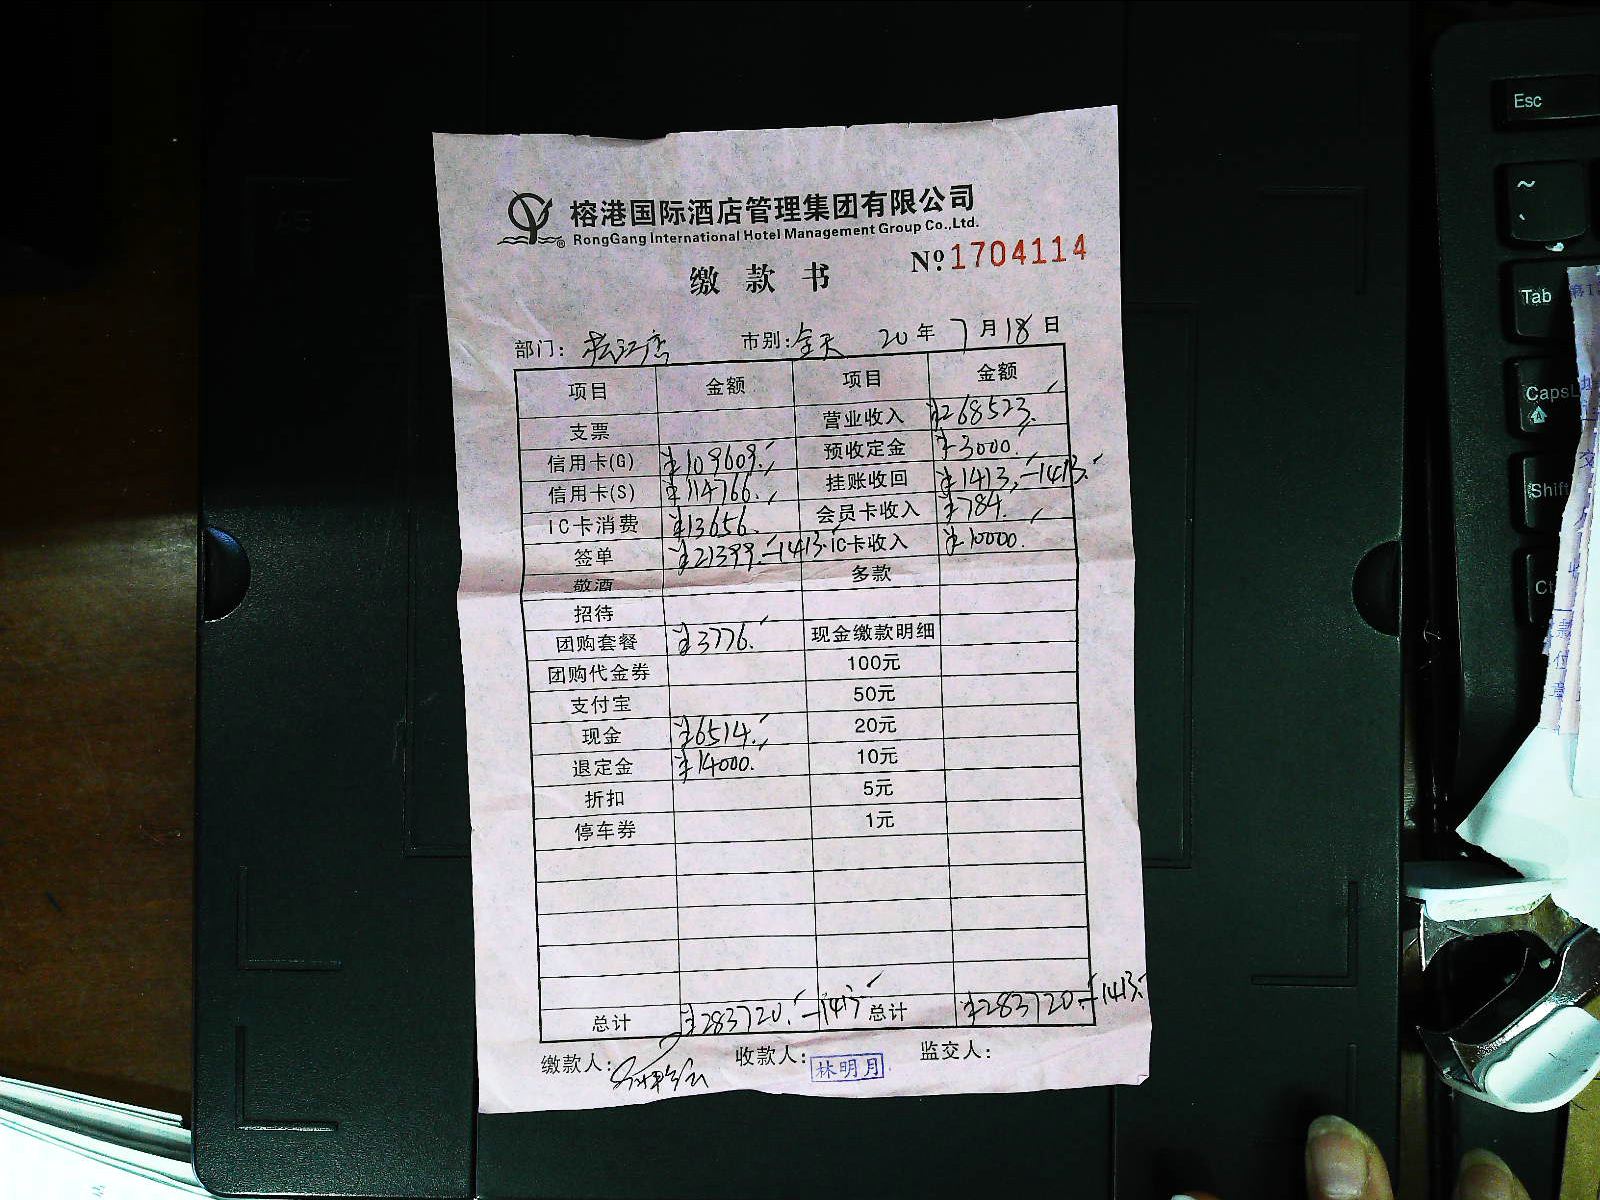 榕港国际酒店管理集团有限公司
RongGang International Hotel Management Group Co.,Ltd.
缴 款 书 Nº 1704114
部门: 松江店 市别: 全天 20 年 7 月 18 日
项目 金额 项目 金额
支票 营业收入 ¥268523.
信用卡(G) ¥109609. 预收定金 ¥3000.
信用卡(S) ¥114766. 挂账收回 ¥1413. -1413.
IC卡消费 ¥13656. 会员卡收入 ¥784.
签单 ¥21399. -1413. IC卡收入 ¥10000.
敬酒 多款
招待
团购套餐 ¥3776. 现金缴款明细
团购代金券 100元
支付宝 50元
现金 ¥6514. 20元
退定金 ¥14000. 10元
折扣 5元
停车券 1元
总计 ¥283720. -1413 总计 ¥283720. -1413.
缴款人: 收款人: 林明月 监交人:
Esc
~
Tab
Caps
Shift